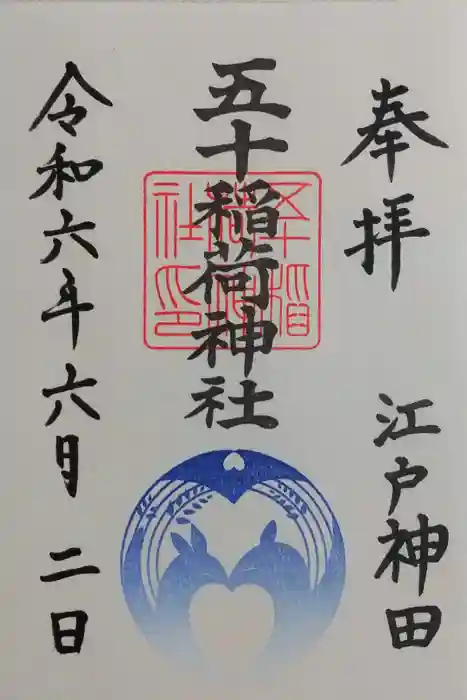 奉拝 江戸神田
五十稲荷神社
五十稲荷神社印
令和六年六月二日